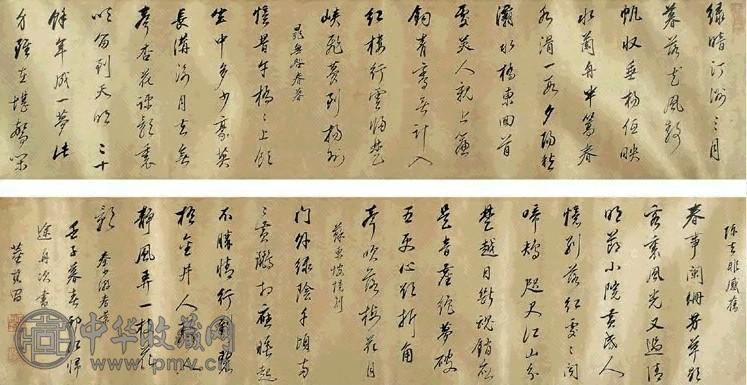 綠暗汀洲三月
暮落花風靜
帆收垂楊低映
木蘭舟半篙春
水滑一段夕陽愁
灞水橋東回首
處美人親上簾
鉤青鸞無計入
紅樓行雲歸楚
峽飛夢到楊州
晁無咎春暮
憶昔午橋橋上飲
坐中多少豪英
長溝流月去無
聲杏花疎影裏
吹笛到天明二十
餘年成一夢此
身雖在堪驚閑
陳去非感舊
春事闌珊芳草歇
客裏風光又過清
明節小院黃昏人
憶別落紅處〻聞
啼鴂咫尺江山分
楚越目斷魂銷應
是音塵絕夢破
五更心欲折角
聲吹落梅花月
蘇東坡惜別
門外綠陰千頃兩
〻黃鸝相應睡起
不勝情行到碧
梧金井人靜人
靜風弄一枝花
影 秦少游春景
壬子暮春邗江歸
途舟次書
董其昌
中华收藏网
www.pmv.cn